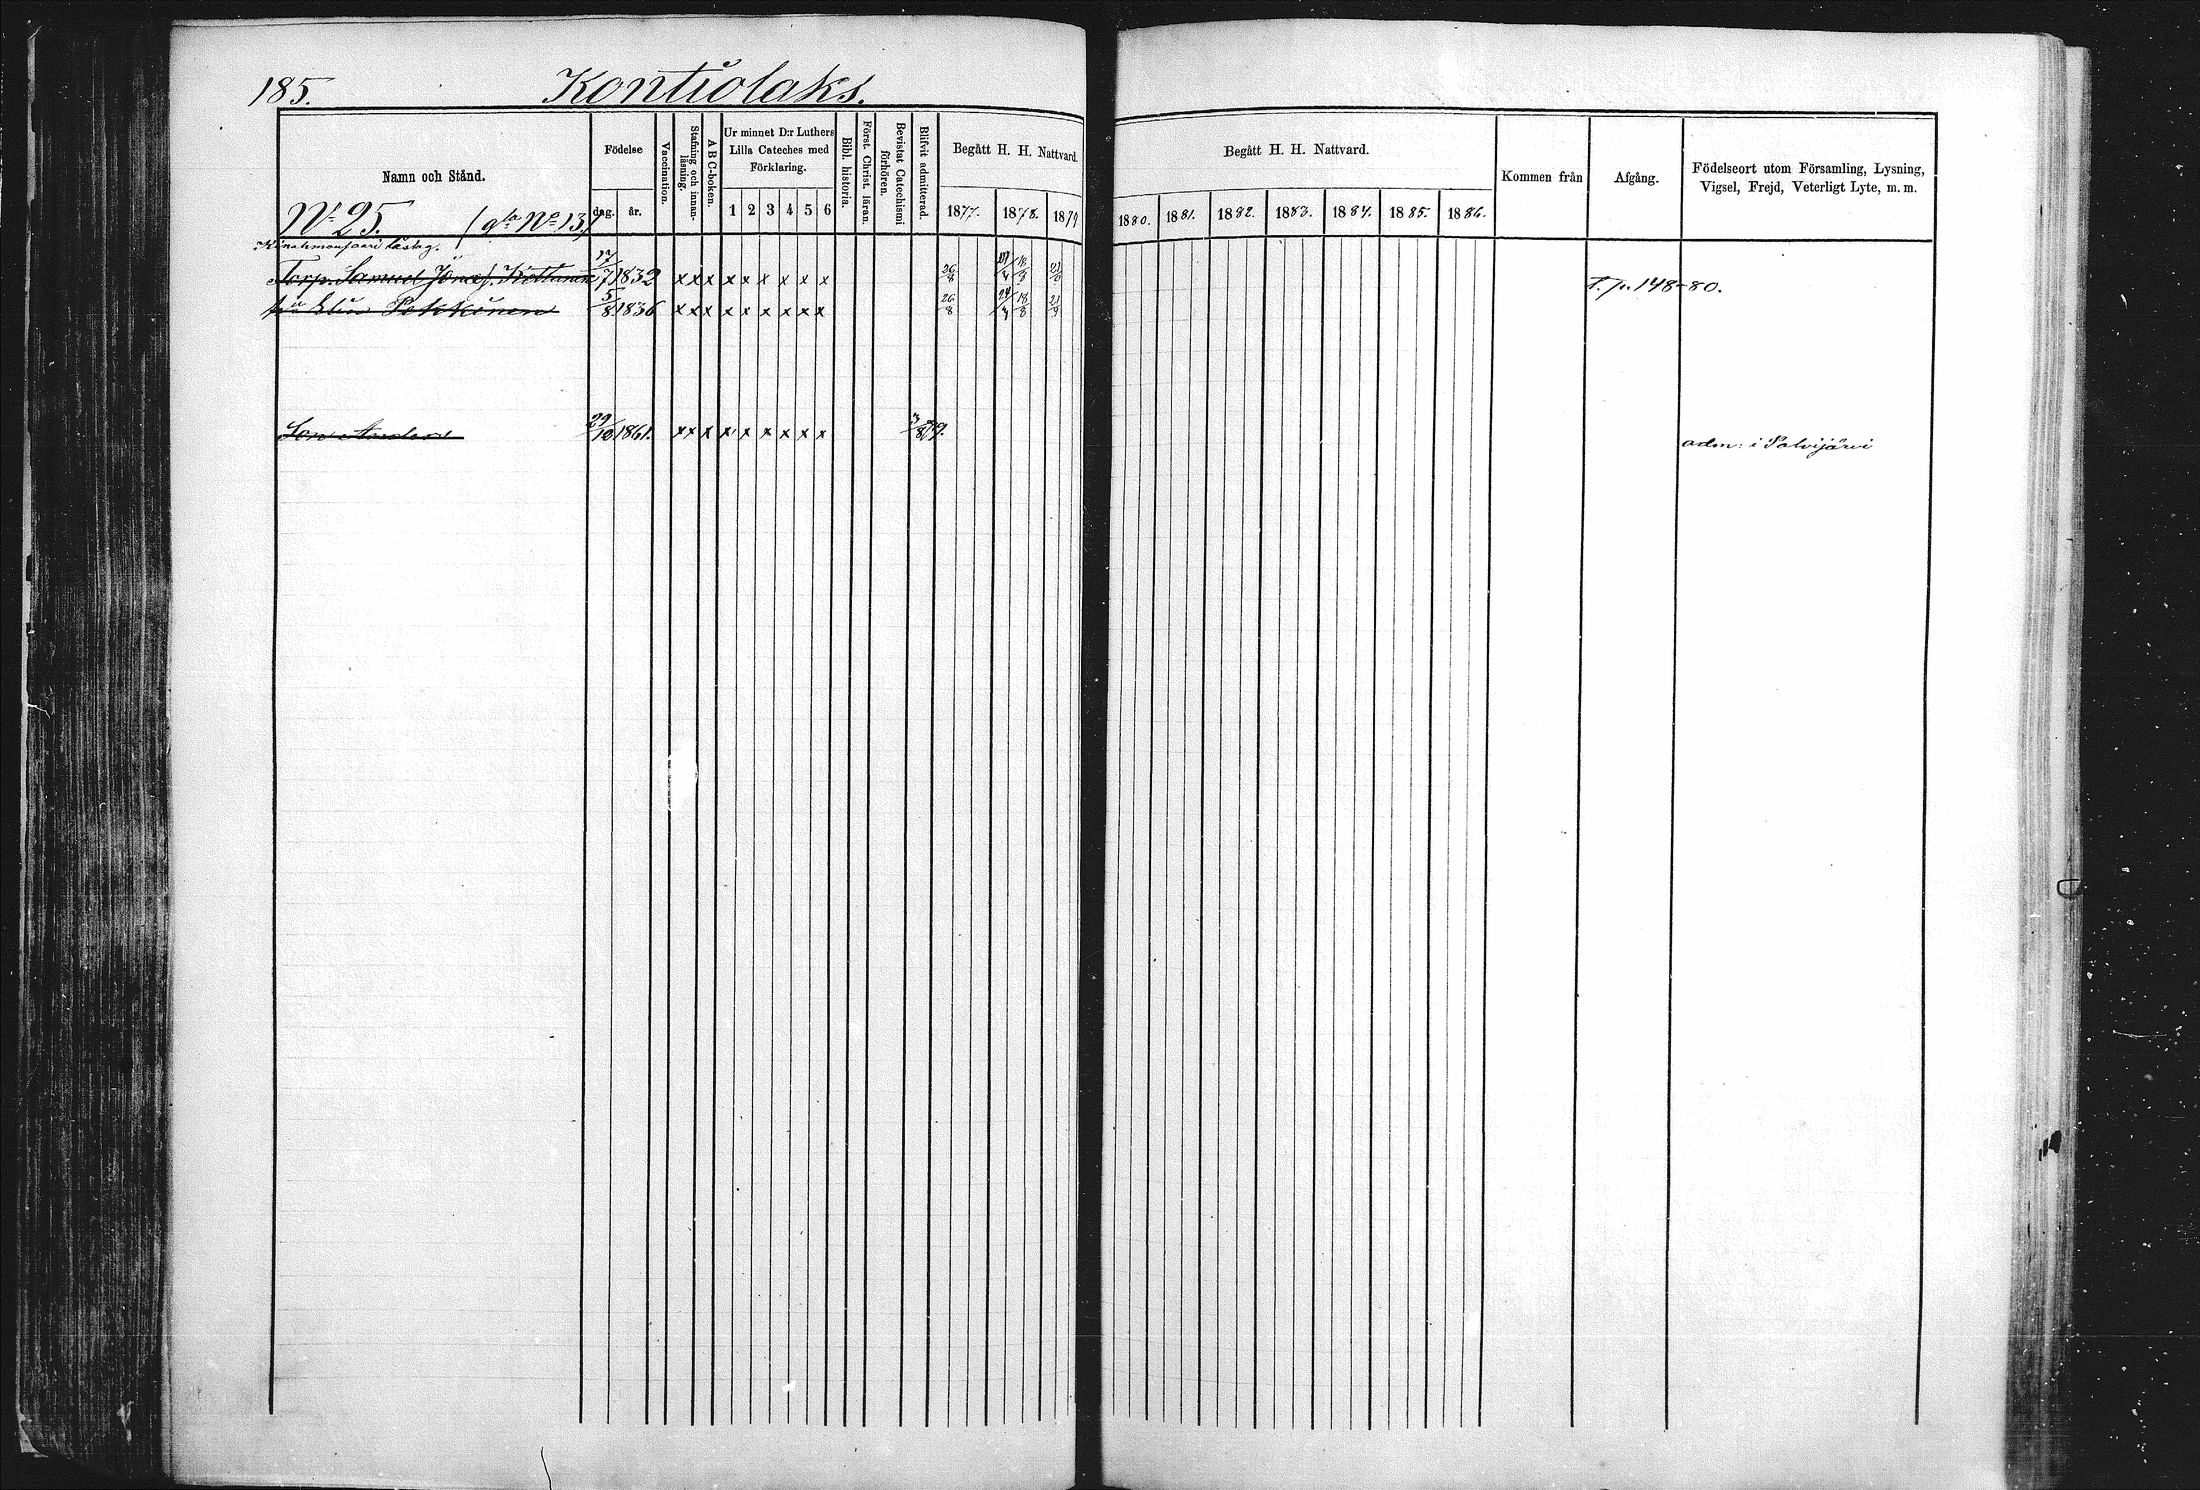 185. Kontiolaks.
Namn och Stånd.
Födelse
dag. år.
Vaccination.
Stafning och innan-läsning.
ABC-boken.
Ur minnet D:r Luthers Lilla Cateches med Förklaring.
1 2 3 4 5 6
Bibl. historia.
Först. Christ. läran.
Bevistat Catechismi förhören.
Blifvit admitterad.
Begått H. H. Nattvard.
1877. 1878. 1879
Begått H. H. Nattvard.
1880. 1881. 1882. 1883. 1884. 1885. 1886.
Kommen från
Afgång.
Födelseort utom Församling, Lysning, Vigsel, Frejd, Veterligt Lyte, m. m.
N:o 25. (gla No 13.)
Torp. Samuel Kettunen 27/7 1832 x x x x x x x x x 26/8 18/8 T. p. 148-80.
5/8 1836 x x x x x x x x x 26/8 24/4 18/8 21/9
Son Anders 29/10 1861. x x x x x x x x x 3/8 79. adm: i Polvijärvi